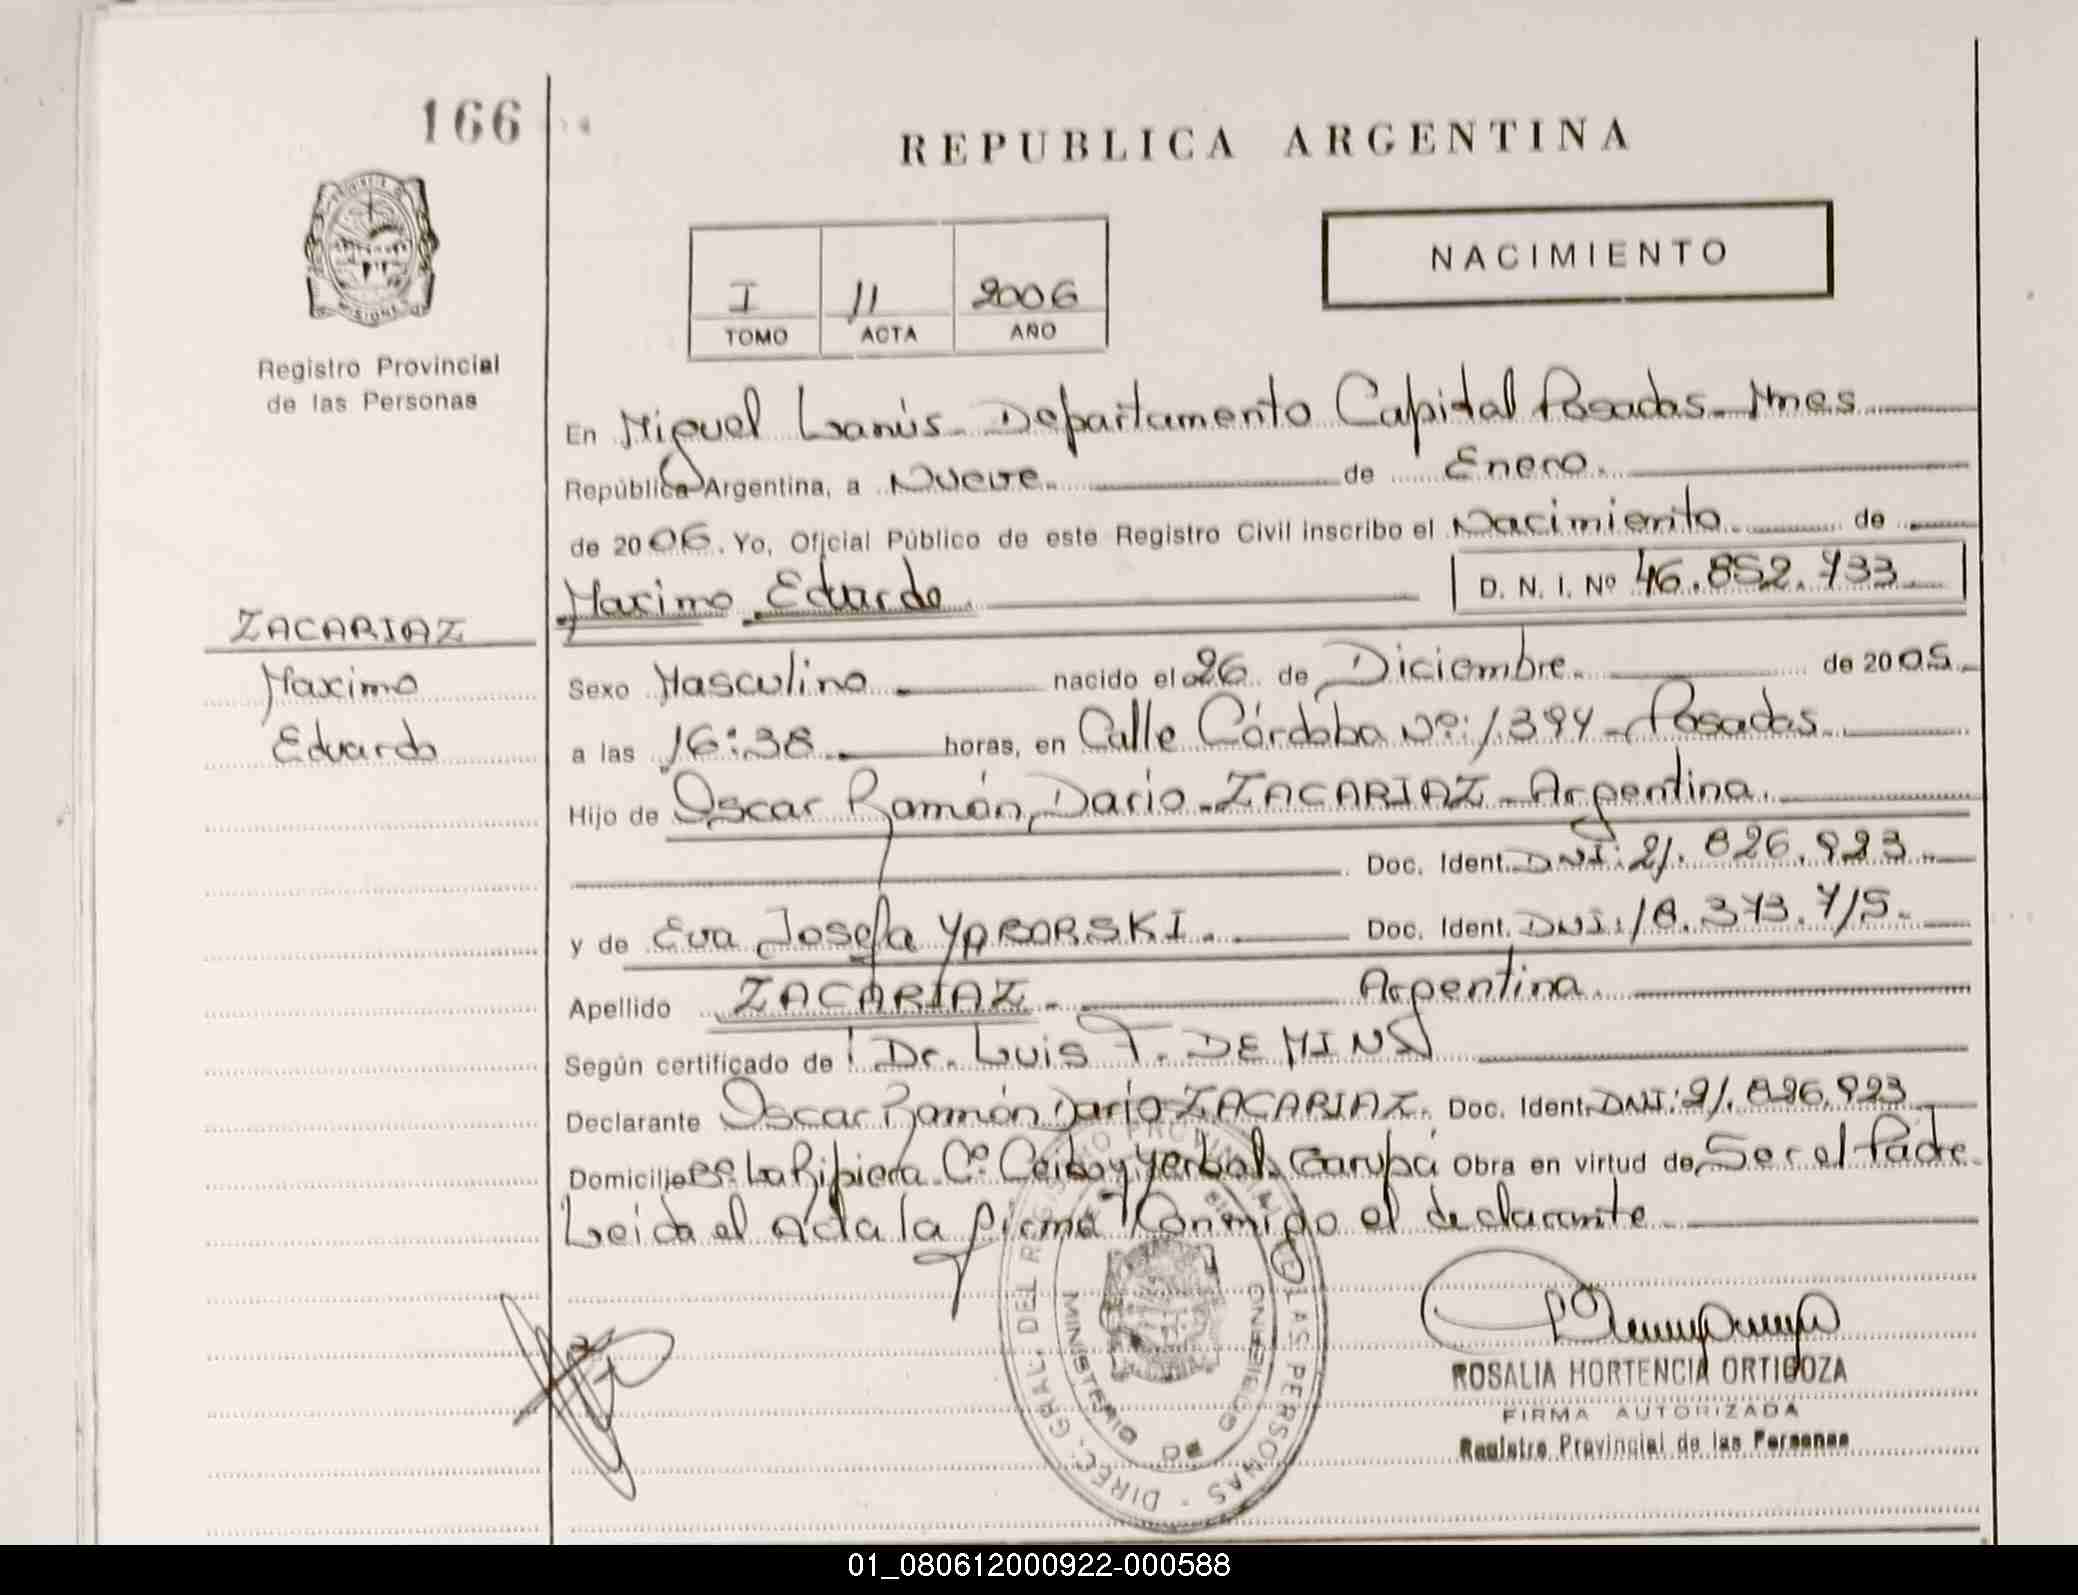 166
REPUBLICA ARGENTINA
NACIMIENTO
I 11 2006
TOMO ACTA AÑO
Registro Provincial
de las Personas
En Miguel Lanús - Departamento Capital Posadas - Mnes
República Argentina, a Nueve de Enero.
de 2006. Yo, Oficial Público de este Registro Civil inscribo el Nacimiento de
Maximo Eduardo D. N. I. Nº 46.852.733
ZACARIAZ
Maximo
Eduardo
Sexo Masculino nacido el 26 de Diciembre. de 2005.
a las 16:38 horas, en Calle Córdoba Nº: 1394 - Posadas.
Hijo de Oscar Ramón Dario - ZACARIAZ - Argentina.
Doc. Ident. DNI: 21.826.923
y de Eva Josefa YARORSKI. Doc. Ident. DNI: 18.373.715.
Apellido ZACARIAZ. Argentina.
Según certificado de Dr. Luis T. DEMINS
Declarante Oscar Ramón Dario ZACARIAZ. Doc. Ident. DNI: 21.826.923
Domicilio Bº La Ribiera Cº. Ceibo y Yerbal. Garupá Obra en virtud de Ser el Padre.
Leida el Acta la firma Conmigo el declarante
DIREC. GRAL. DEL REGISTRO PROVINCIAL DE LAS PERSONAS
MINISTERIO DE GOBIERNO
ROSALIA HORTENCIA ORTIGOZA
FIRMA AUTORIZADA
Registro Provincial de las Personas
01_080612000922-000588